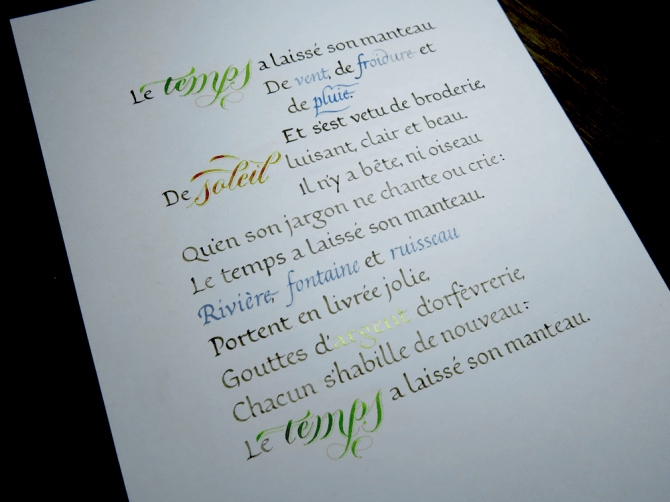 Le temps a laissé son manteau
De vent, de froidure et
de pluie.
Et s'est vetu de broderie,
De soleil luisant, clair et beau.
Il n'y a bête, ni oiseau
Qu'en son jargon ne chante ou crie:
Le temps a laissé son manteau.
Rivière, fontaine et ruisseau
Portent en livrée jolie,
Gouttes d'argent d'orfèvrerie,
Chacun s'habille de nouveau:
Le temps a laissé son manteau.